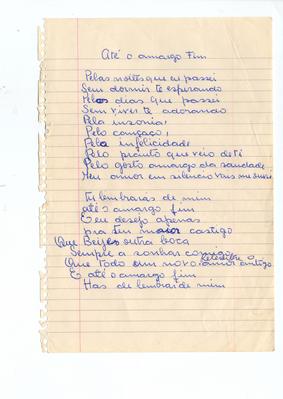 Até o amargo Fim
Pelas noites que eu passei
Sem dormir te esperando
Pelos dias que passei
Sem viver te adorando
Pela insonia,
Pelo cançaço,
Pela infelicidade
Pelo pranto que veio de ti
Pelo gosto amargo da saudade,
Meu amor em silêncio
Te lembraras de mim
até o amargo fim
E eu desejo apenas
pra teu maior castigo
Que Beijes outra boca
Sempre a sonhar comigo
Que todo em novo amor antigo
E até o amargo fim
Has de lembrar de mim